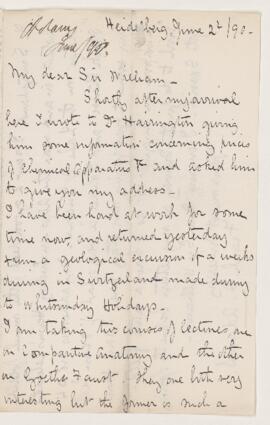 Heidelberg, June 2d /90.
June /90
My dear Sir William -
Shortly after my arrival
here I wrote to Dr Harrington giving
him some information concerning prices
of chemical apparatus & and asked him
to give you my address.
I have been hard at work for some
time now, and returned yesterday
from a geological excursion of a weeks
duration in Switzerland made during
the Whitsunday Holidays.
I am taking two courses of lectures, one
on Comparative Anatomy and the other
on Goethe's Faust. They are both very
interesting but the former is such a